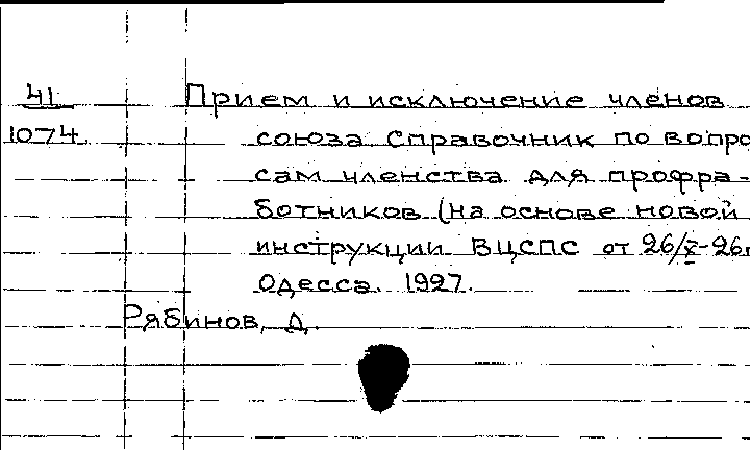 41
1074
Прием и исключение членов
союза Справочник по вопро
сам членства для профра-
ботников (на основе новой
инструкции ВЦСПС от 26/X-26г
Одесса. 1927.
Рябинов, Д.